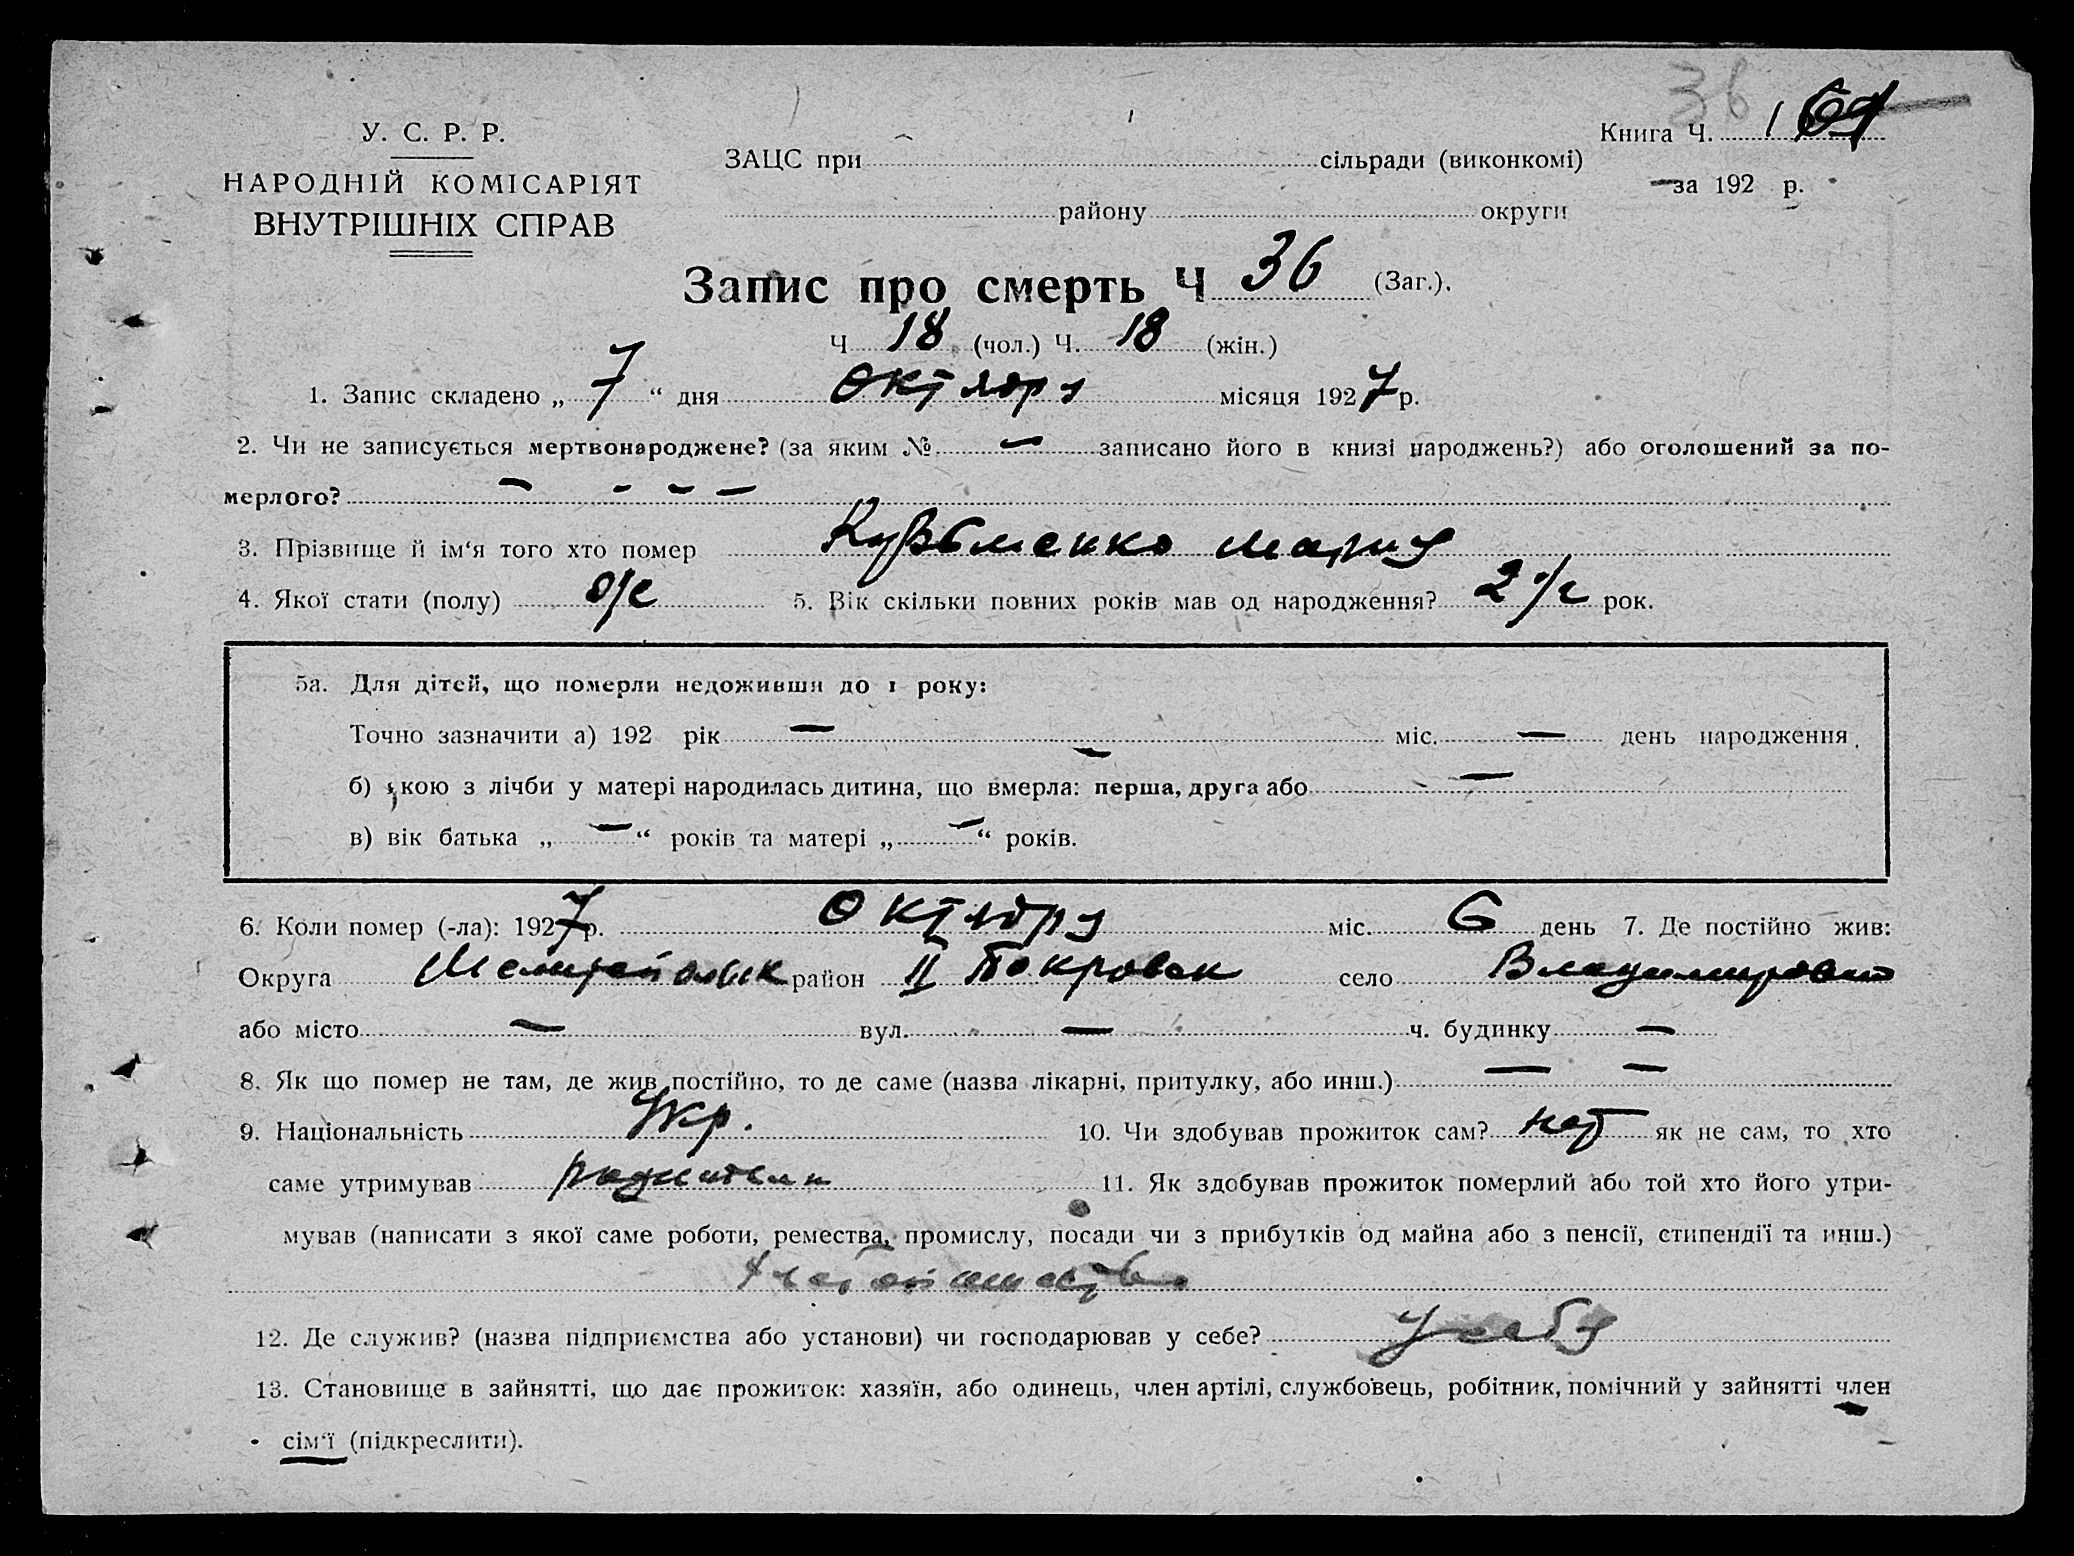 36
У. С. Р. Р.
НАРОДНІЙ КОМІСАРІЯТ
ВНУТРІШНІХ СПРАВ
Книга Ч.
ЗАЦС при сільради (виконкомі)
за 192 р.
району округи
Запис про смерть Ч 36 (Заг.).
Ч 18 (чол.) Ч. 18 (жін.)
1. Запис складено „ 7 “ дня октября місяця 1927 р.
2. Чи не записується мертвонароджене? (за яким № — записано його в книзі народжень?) або оголошений за по-
мерлого? — - - —
3. Прізвище й ім‘я того хто помер Кузьменко Мария
4. Якої стати (полу) ж 5. Вік скільки повних років мав од народження? 2 рок.
5а. Для дітей, що померли недоживши до 1 року:
Точно зазначити а) 192 рік — міс. — день народження.
б) якою з лічби у матері народилась дитина, що вмерла: перша, друга або —
в) вік батька „ — “ років та матері „ — “ років.
6. Коли помер (-ла): 1927 р. Октября міс. 6 день 7. Де постійно жив:
Округа район II Покровск село
або місто — вул. — ч. будинку —
8. Як що помер не там, де жив постійно, то де саме (назва лікарні, притулку, або инш.) — —
9. Національність Укр. 10. Чи здобував прожиток сам? нет як не сам, то хто
саме утримував родители 11. Як здобував прожиток померлий або той хто його утри-
мував (написати з якої саме роботи, ремества, промислу, посади чи з прибутків од майна або з пенсії, стипендії та инш.)
12. Де служив? (назва підприємства або установи) чи господарював у себе? у себя
13. Становище в зайнятті, що дає прожиток: хазяїн, або одинець, член артілі, службовець, робітник, помічний у зайнятті член
сім‘ї (підкреслити).